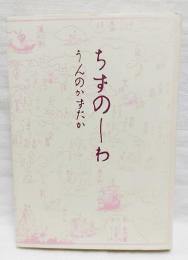 ちずのしわ
うんのかずたか